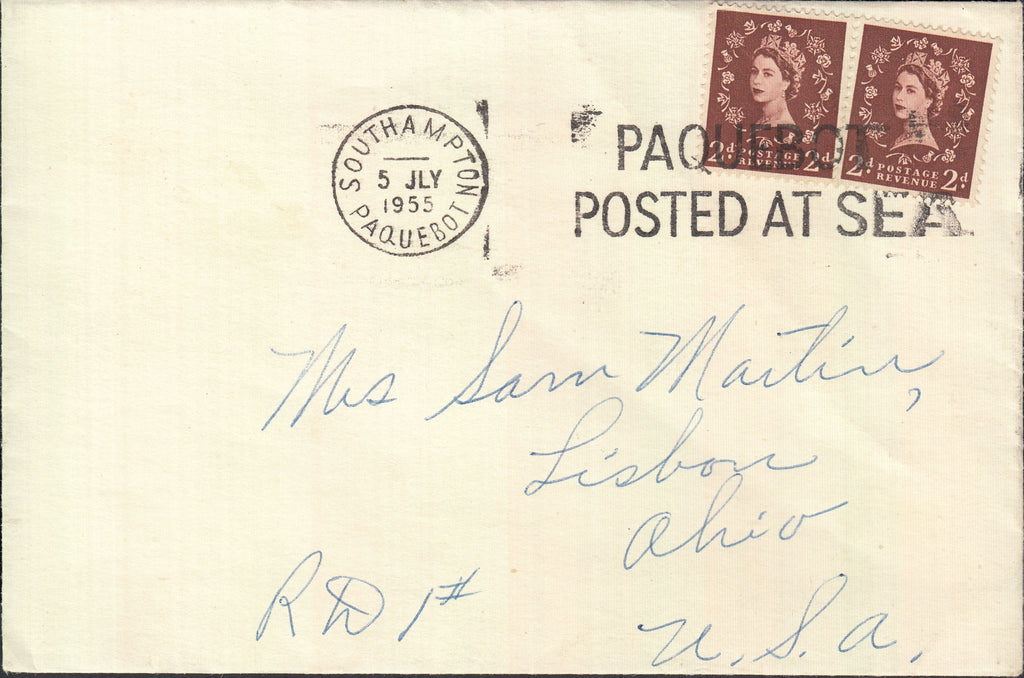 SOUTHAMPTON
5 JLY
1955
PAQUEBOT
PAQUEBOT
POSTED AT SEA
2d POSTAGE REVENUE 2d
2d POSTAGE REVENUE 2d
Mrs Sam Martin,
Lisbon
Ohio
RD 1#
U.S.A.